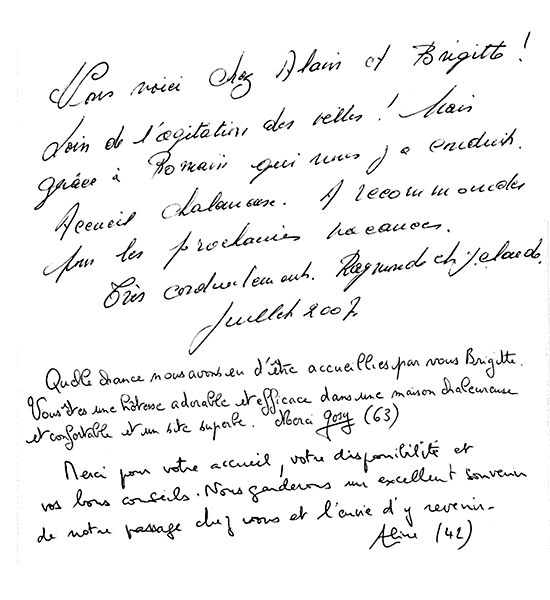 Nous voici chez Alain et Brigitte !
Loin de l'agitation des villes ! Mais
grâce à Romain qui nous y a conduit.
Accueil chaleureux. A recommander
pour les prochaines vacances.
Très cordialement. Raymonde et
Juillet 2007
Quelle chance nous avons eu d'être accueillies par vous Brigitte.
Vous êtes une hôtesse adorable et efficace dans une maison chaleureuse
et confortable et un site superbe. Merci Josy (63)
Merci pour votre accueil, votre disponibilité et
vos bons conseils. Nous garderons un excellent souvenir
de notre passage chez vous et l'envie d'y revenir -
Aline (42)